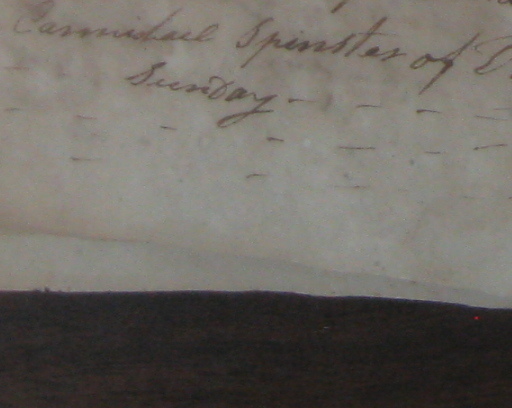 Carmichael Spinster of
Sunday